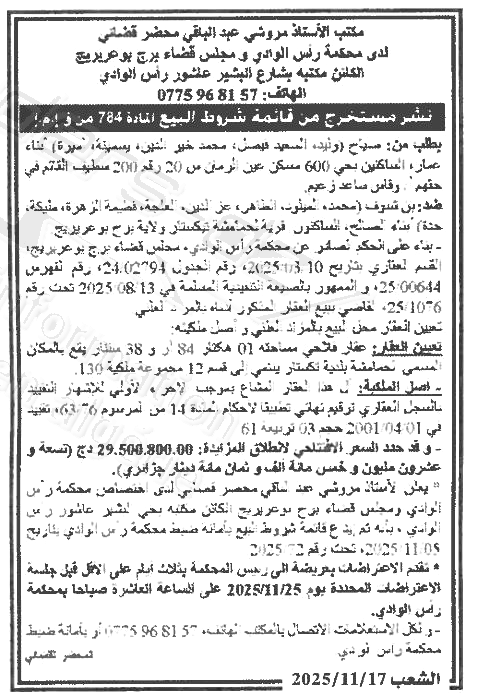 مكتب الأستاذ مروشي عبد الباقي محضر قضائي
لدى محكمة رأس الوادي و مجلس قضاء برج بوعريريج
الكائن مكتبه بشارع البشير عاشور رأس الوادي
الهاتف: 57 81 96 0775
نشر مستخرج من قائمة شروط البيع المادة 784 من ق إ م إ
بطلب من: صباح (وليد، السعيد فيصل، محمد خير الدين، يسمينة، أميرة) أبناء
عمار، الساكنين بحي 600 مسكن عين الرمان س 20 رقم 200 سطيف القائم في
حقهم أ. وقاس ساعد زعيم.
ضد: بن تسوف (محمد، الميلود، الطاهر، عز الدين، العلجة، فطيمة الزهرة، مليكة،
حدة) أبناء الصالح، الساكنون قرية لحمامشية تيكستار ولاية برج بوعريريج
- بناء على الحكم الصادر عن محكمة رأس الوادي، مجلس قضاء برج بوعريريج،
القسم العقاري بتاريخ 2025/03/10، رقم الجدول 24/02794، رقم الفهرس
25/00644، و الممهور بالصيغة التنفيذية المسلمة في 2025/08/13 تحت رقم
25/1076، القاضي ببيع العقار المذكور أدناه بالمزاد العلني
تعيين العقار محل البيع بالمزاد العلني و أصل ملكيته:
تعيين العقار: عقار فلاحي مساحته 01 هكتار 84 آر و 38 سنتيار يقع بالمكان
المسمى لحمامشية بلدية تكستار ينتمي إلى قسم 12 مجموعة ملكية 130.
- أصل الملكية: آل هذا العقار المشاع بموجب الإجراء الأولي للإشهار التقييد
بالسجل العقاري ترقيم نهائي تطبيقا لأحكام المادة 14 من المرسوم 76-63، تقييد
في 2001/04/01 حجم 03 تربيعة 61
- و قد حدد السعر الافتتاحي لانطلاق المزايدة: 29.500.800.00 دج (تسعة و
عشرون مليون و خمس مائة ألف و ثمان مائة دينار جزائري).
* يعلن الأستاذ مروشي عبد الباقي محضر قضائي لدى اختصاص محكمة رأس
الوادي ومجلس قضاء برج بوعريريج الكائن مكتبه بحي البشير عاشور رأس
الوادي ، بأنه تم إيداع قائمة شروط البيع بأمانة ضبط محكمة رأس الوادي بتاريخ
2025/11/08، تحت رقم 2025/72
* تقدم الاعتراضات بعريضة الى رئيس المحكمة بثلاث أيام على الأقل قبل جلسة
الاعتراضات المحددة يوم 2025/11/25 على الساعة العاشرة صباحا بمحكمة
رأس الوادي.
- و لكل الاستعلامات الاتصال بالمكتب الهاتف، 57 81 96 0775 أو بأمانة ضبط
محكمة رأس الوادي
المحضر القضائي
الشعب 2025/11/17